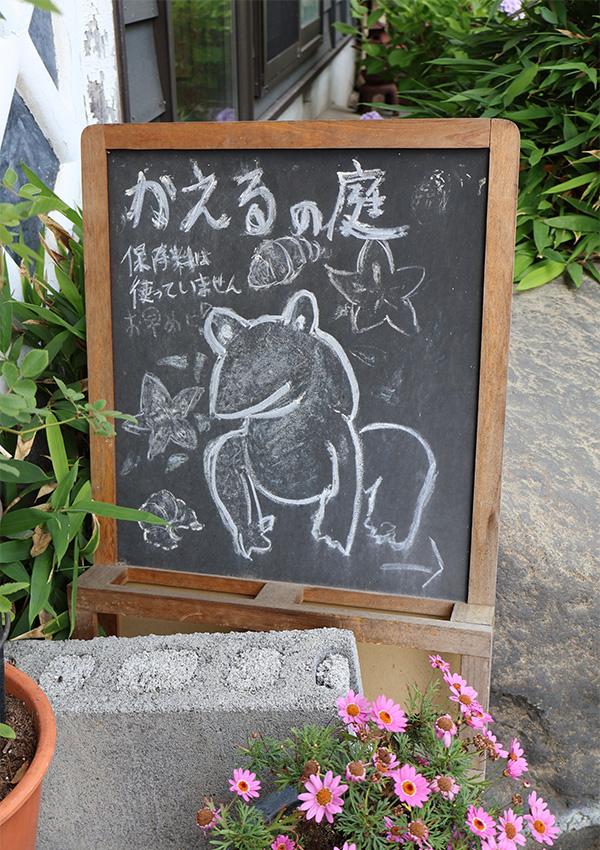 かえるの庭
保存料は
使っていません
お早めに